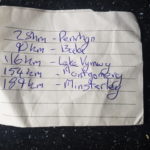 23km - Penrhyn
90km - Bader
116km - Lake Vyrnwy
154km - Montgomery
184km - Minsterley